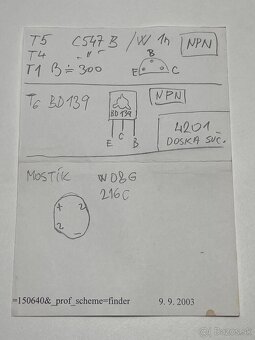 T5 C547B /W 1n NPN
T4 " "
B
T1 B ≐ 300
E C
T6 BD139 NPN
BD139
E C B
4201
DOSKA
MOSTÍK WD8G
216C
+ 2
2 -
=150640&_prof_scheme=finder 9. 9. 2003
bazos.sk